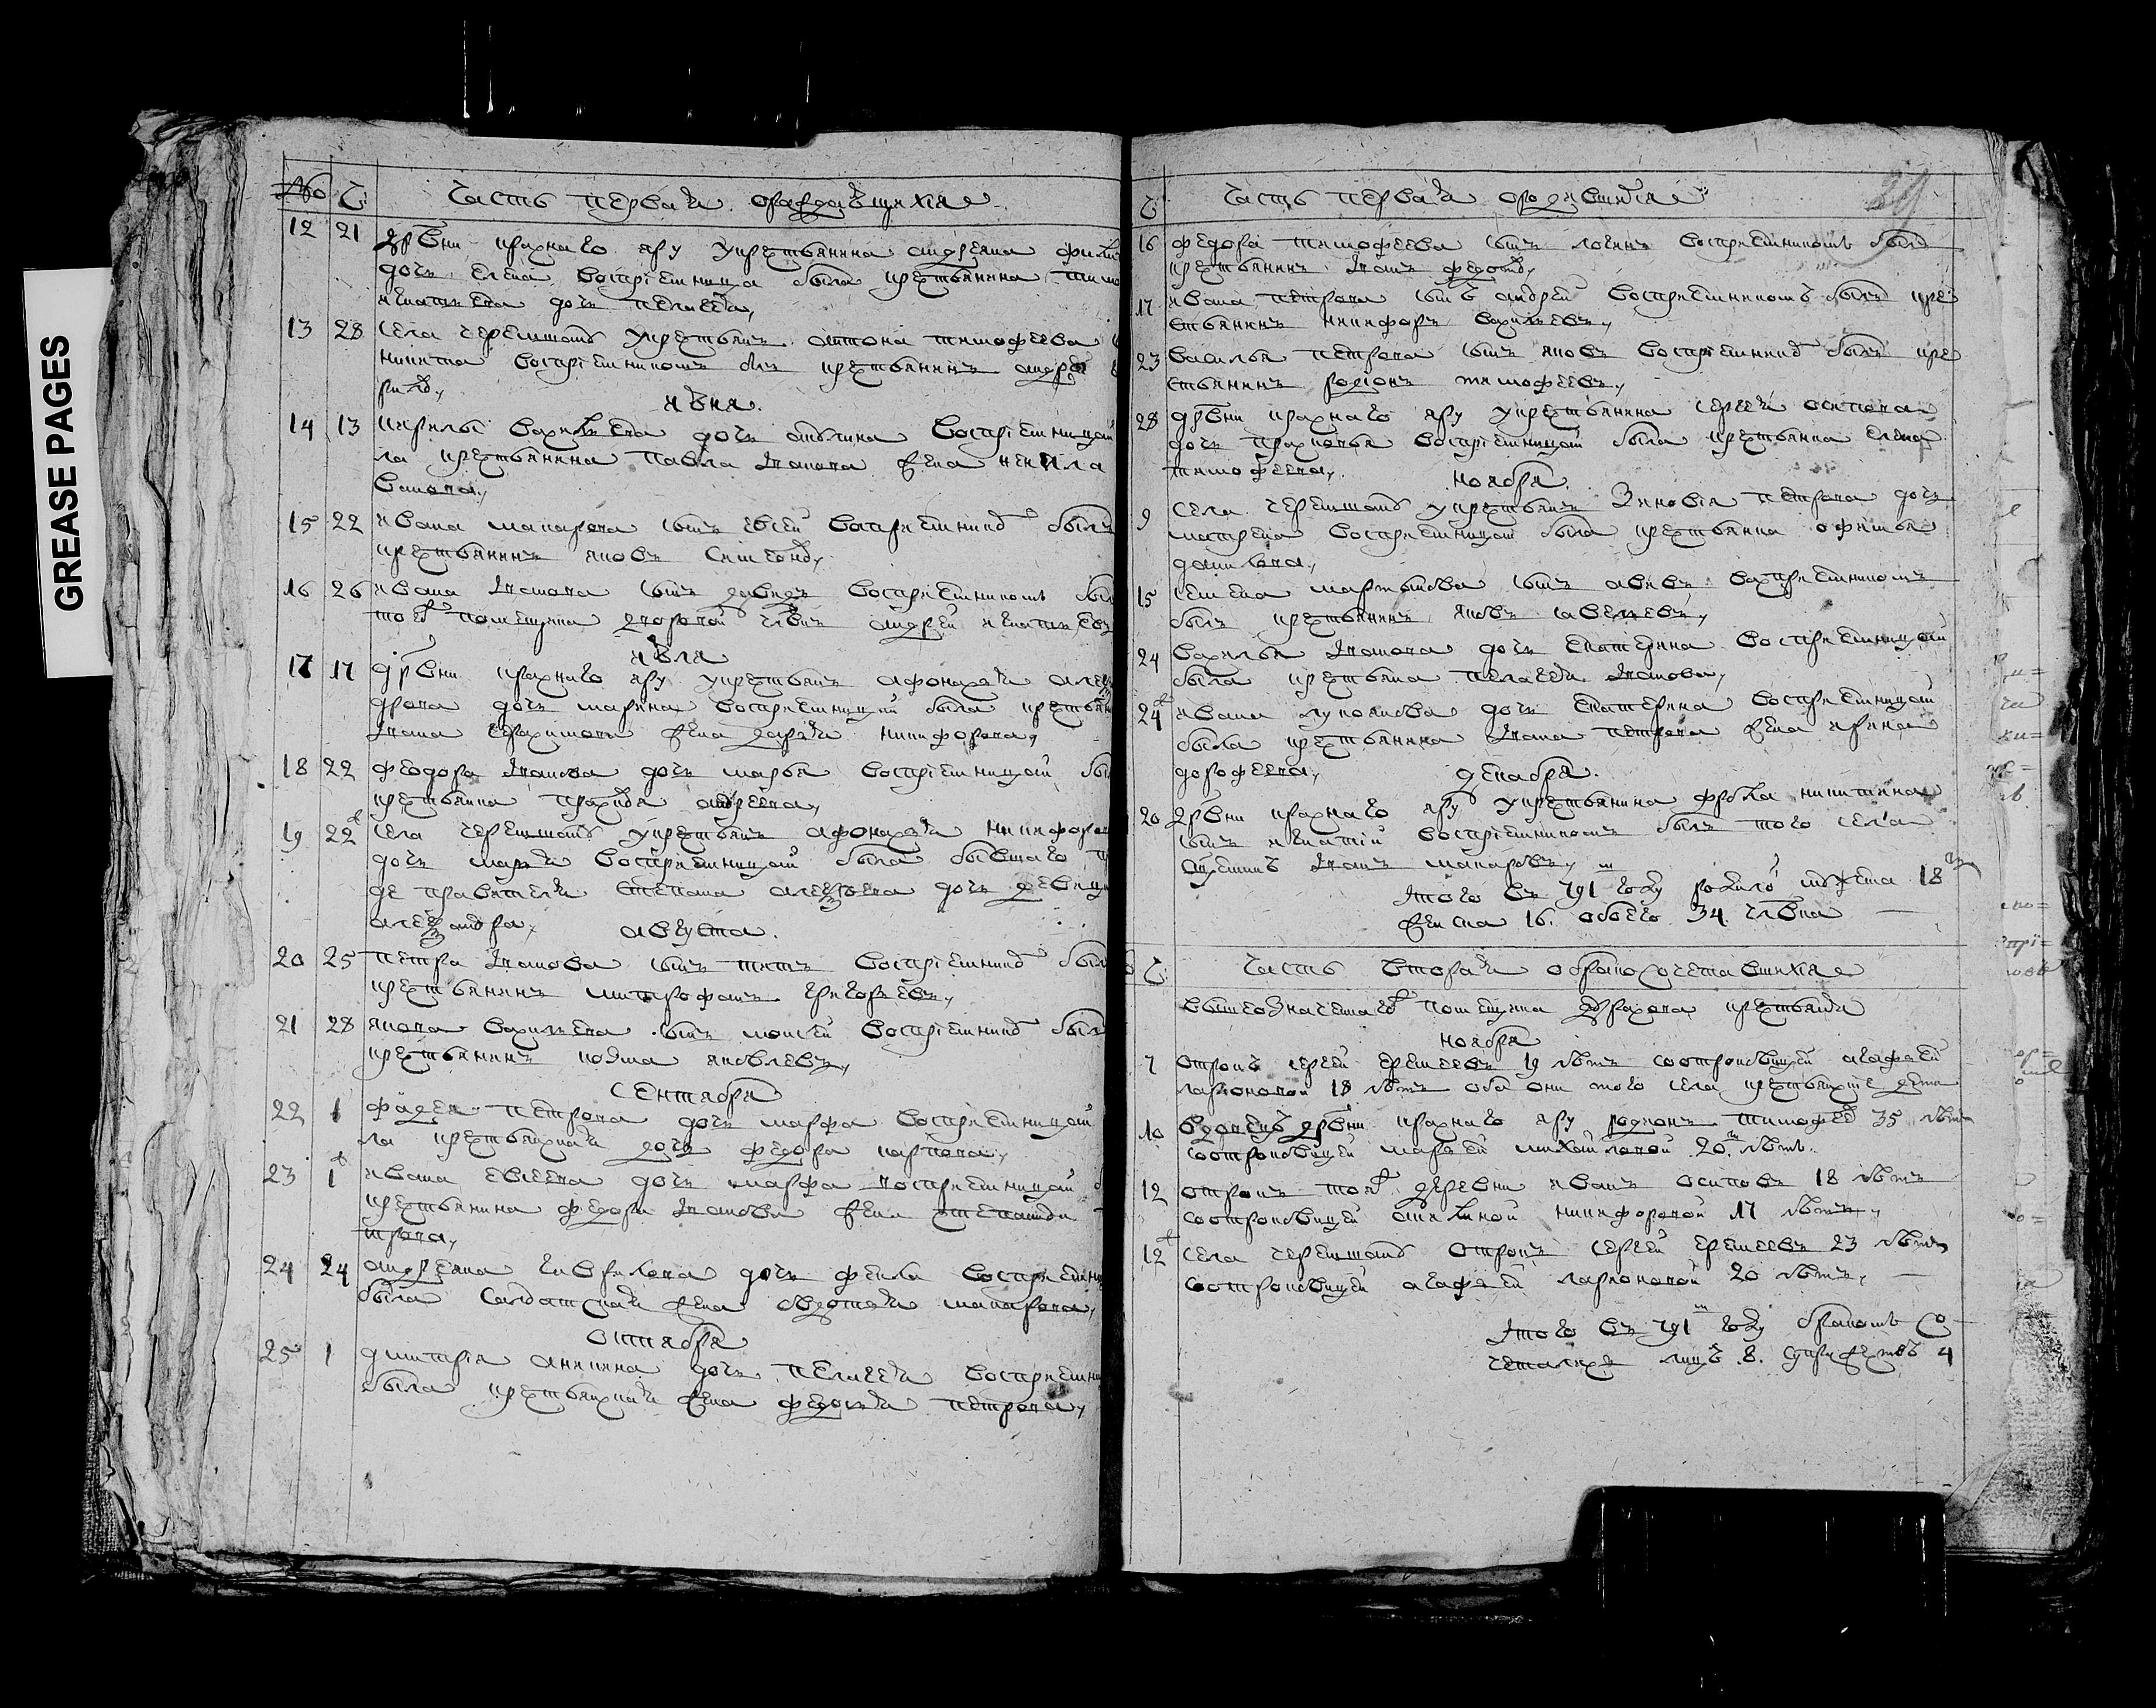 GREASE PAGES
№ Ч: Часть первая ораждающихся
12 21 дрвни краснаго яру у крестьянина андреяна
дочь елена восприемница была крестьянина
игнатьева дочь пелагея,
13 28 села черемшанъ у крестьянъ антона тимофеева
никита восприемникомъ былъ крестьянинъ андрей
июня.
14 13 кирилы васильева дочь акулина восприемницей
ла крестьянина павла иванова жена ненила
ванова,
15 22 ивана макарова сынъ евсей восприемникъ былъ
крестьянинъ яковъ симеоновъ,
16 26 ивана иванова сынъ давидъ восприемникомъ бы
тогожъ помещика дворовой члвкъ андрей игнатьевъ
июля
17 17 дрвни краснаго яру у крестьянъ афонасья алекса
дрова дочь марина восприемницей была крестьян
ивана герасимова жена дарья никифорова,
18 22 феодора иванова дочь марья восприемницей бы
крестьянка праскодья андреева,
19 22 села черемшанъ у крестьянъ афонасья никифоро
дочь марья восприемницей была бывшаго
де правителя степана алексеева дочь девица
александра, августа.
20 25 петра иванова сынъ титъ восприемникъ былъ
крестьянинъ митрофанъ григорьевъ,
21 28 якова васильева сынъ моисей восприемникъ был
крестьянинъ козма яковлевъ,
сентября
22 1 фадея петрова дочь марфа восприемницей
ла крестьянская дочь федора карпова,
23 1 ивана евсеева дочь марфа восприемницей
крестьянина федора иванова жена степанида
трова,
24 24 андреяна гаврилова дочь фекла восприемни
была салдатская жена авдотья макарова,
октября
25 1 дмитрия аникина дочь пелагея восприемни
была крестьянская жена федосья петрова,
Ч: Часть первая ородившихся
16 федора тимофеева сынъ логинъ восприемникомъ былъ
крестьянинъ иванъ федотовъ,
17 ивана петрова сынъ андрей восприемникомъ былъ кре
стьянинъ никифоръ васильевъ,
23 василья петрова сынъ яковъ восприемникъ былъ кре
стьянинъ родионъ тимофеевъ,
28 дрвни краснаго яру у крестьянина сергея осипова
дочь прасковья восприемницей была крестьянка елена
тимофеева,
ноября.
9 села черемшанъ у крестьянъ зиновия петрова дочь
матрена восприемницей была крестьянка офимья
данилова,
15 семена мартынова сынъ авивъ восприемникомъ
былъ крестьянинъ яковъ савельевъ,
24 василья иванова дочь екатерина восприемницей
была крестьянка пелагея иванова,
24 ивана лукоянова дочь екатерина восприемницей
была крестьянина ивана петрова жена ирина
дорофеева, декабря.
20 дрвни краснаго яру у крестьянина фрола никитина
сынъ игнатий восприемникомъ былъ того села
иванъ макаровъ,
Итого въ 791 году родилось мужеска 18
женска 16. обоего 34 члвка
Ч: Часть вторая обракосочетавшихся
вышеозначеннагожъ помещика крестьяне
ноября
7 отрокъ сергей еремеевъ 19 летъ сотроковицей агафьей
ларионовой 18 летъ оба они того села крестьянские дети
10 вдовецъ дрвни краснаго яру родионъ тимофеевъ 35 летъ
сотроковицей марьей михайловой 20 летъ.
12 отрокъ тояжъ деревни иванъ осиповъ 18 летъ
сотроковицей акилиной никифоровой 17 летъ,
12 села черемшанъ отрокъ сергей еремеевъ 23 летъ
сотроковицей агафьей ларионовой 20 летъ,
Итого въ 791 году бракомъ со
четалися лицъ 8. супружествъ 4